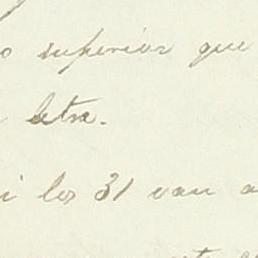 superior que
letra.
los 31 van a